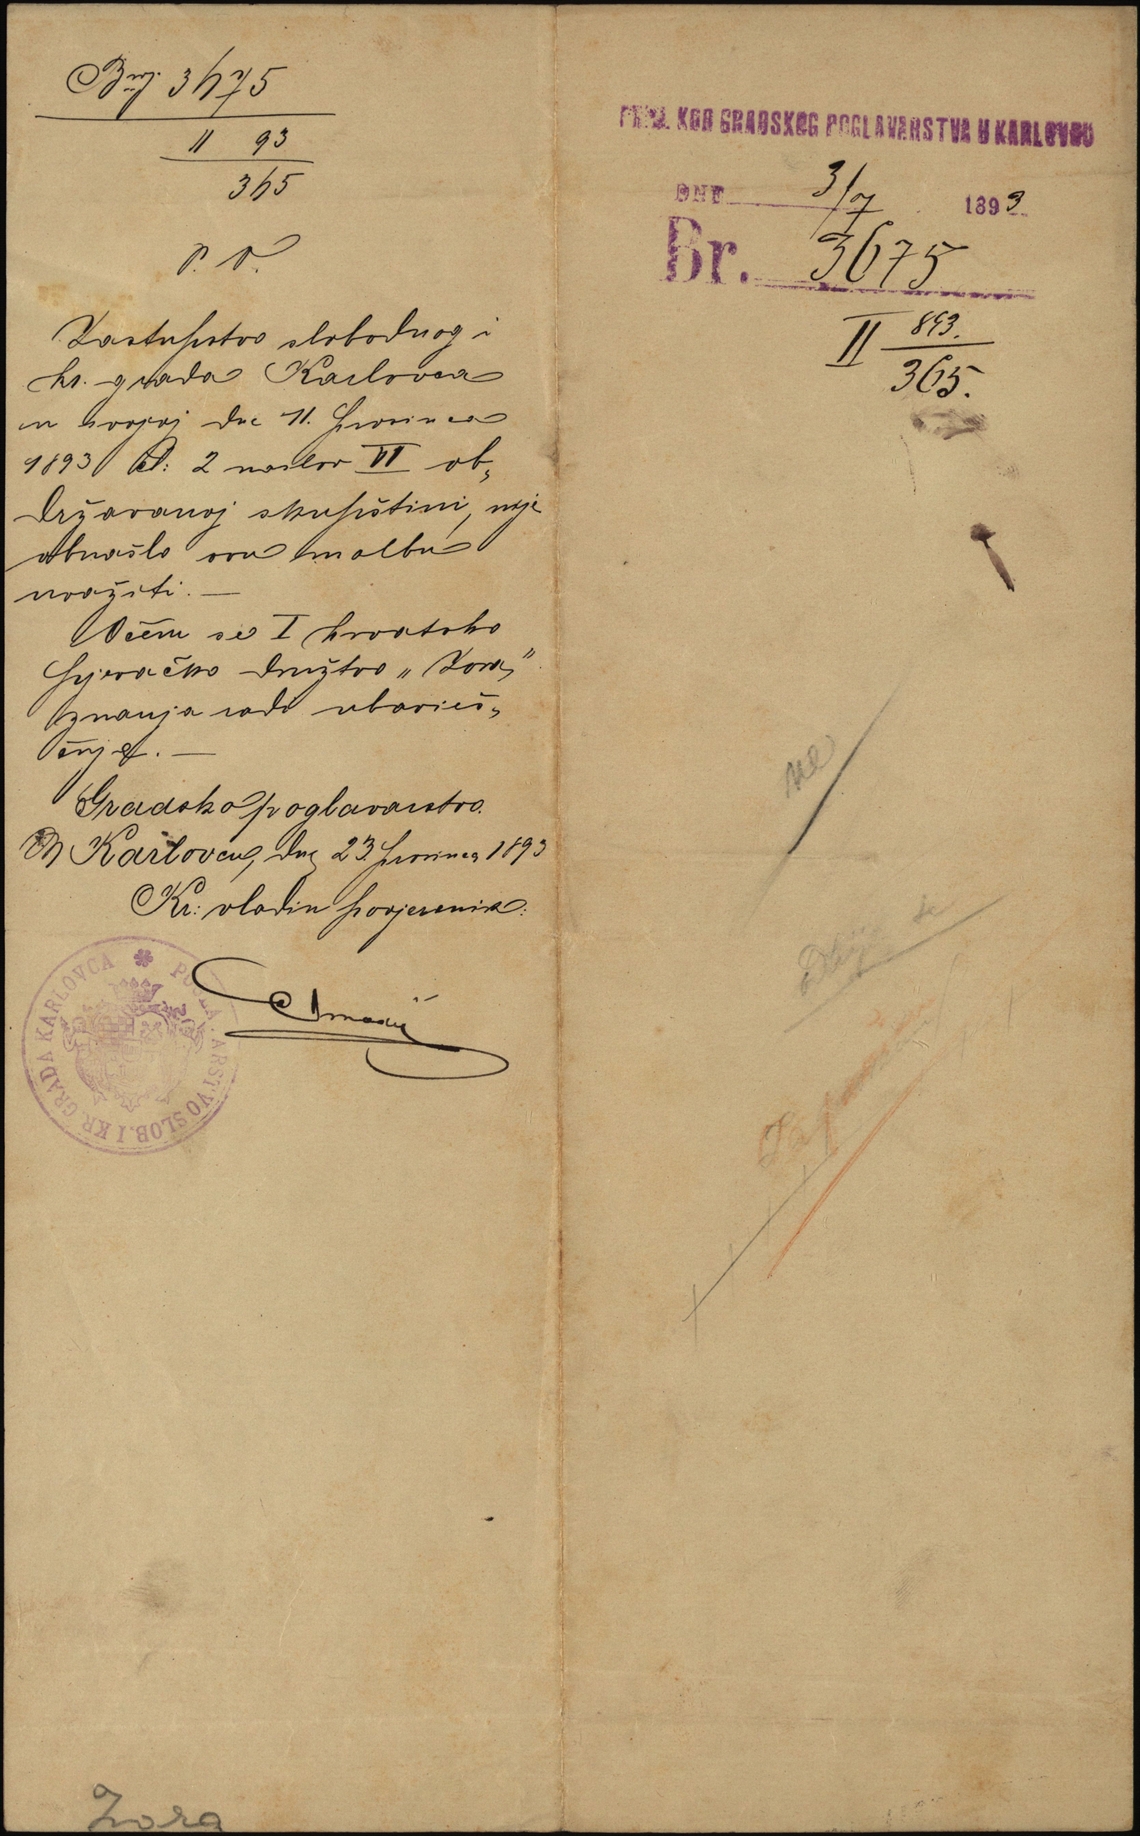 Broj 3675
II 93
365
P. N.
Zastupstvo slobodnog i
kr. grada Karlovca
u svojoj dne 11. prosinca
1893 pod: 2 naslov VI ob„
državanoj skupštini, nije
obnašlo ovu molbu
uvažiti. —
O čem se I hrvatsko
pjevačko družtvo „Zora"
znanja radi ubavieš„
ćuje. —
Gradsko poglavarstvo.
U Karlovcu, dne 23. prosinca 1893
Kr: vladin povjerenik:
POGLAVARSTVO SLOB. I KR. GRADA KARLOVCA
Zora
PRIM. KOD GRADSKOG POGLAVARSTVA U KARLOVCU
DNE 3/7 1893
Br. 3675
II 893.
365.
ne
Odbija se